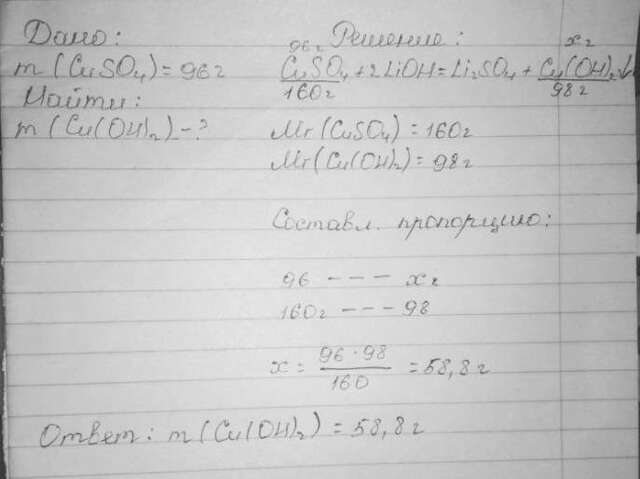 Дано:
m (CuSO₄) = 96 г
Найти:
m (Cu(OH)₂) - ?
Решение:
96 г x г
CuSO₄ + 2LiOH = Li₂SO₄ + Cu(OH)₂↓
160 г 98 г
Mr (CuSO₄) = 160 г
Mr (Cu(OH)₂) = 98 г
Составл. пропорцию:
96 - - - x г
160 г - - - 98
x = 96 · 98 / 160 = 58,8 г
Ответ: m (Cu(OH)₂) = 58,8 г